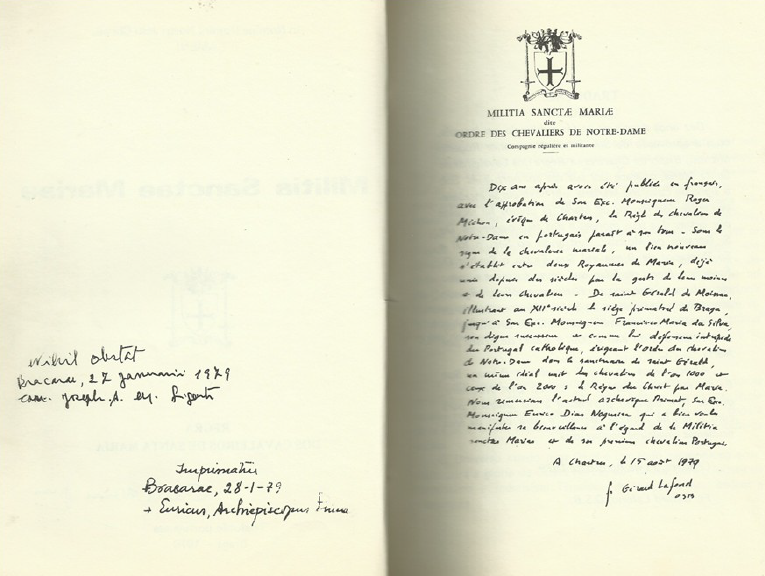 Nihil obstat
Bracarae, 27 januarii 1979
Imprimatur
Bracarae, 28-1-79
+ Euricus, Archiepiscopus Primas
MILITIA SANCTÆ MARIÆ
dite
ORDRE DES CHEVALIERS DE NOTRE-DAME
Compagnie régulière et militante
Dix ans après avoir été publiée en français,
avec l'approbation de Son Exc. Monseigneur Roger
Michon, évêque de Chartres, la Règle des chevaliers de
Notre-Dame en portugais paraît à son tour. Sous le
signe de la chevalerie mariale, un lien nouveau
s'établit entre deux Royaumes de Marie, déjà
unis depuis des siècles par la geste de leurs moines
et de leurs chevaliers. De saint Gérald de Moissac,
illustrant au XIIe siècle le siège primatial de Braga,
jusqu'à Son Exc. Monseigneur Francisco Maria da Silva,
son digne successeur et comme lui défenseur intrépide
du Portugal catholique, érigeant l'Ordre des chevaliers
de Notre-Dame dans le sanctuaire de saint Gérald,
un même idéal unit les chevaliers de l'an 1000 et
ceux de l'an 2000 : le Règne du Christ par Marie.
Nous remercions l'actuel archevêque Primat, Son Exc.
Monseigneur Eurico Dias Nogueira qui a bien voulu
manifester sa bienveillance à l'égard de la Militia
sanctae Mariae et de ses premiers chevaliers Portugais.
A Chartres, le 15 août 1979
f. Gérard Lafond